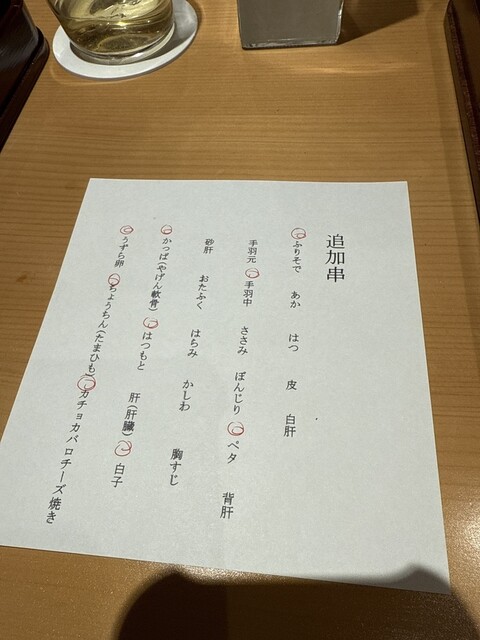 追加串
ふりそで あか はつ 皮 白肝
手羽元 手羽中 ささみ ぼんじり ペタ 背肝
砂肝 おたふく はちみ かしわ 胸すじ
かっぱ(やげん軟骨) はつもと 肝(肝臓) 白子
うずら卵 ちょうちん(たまひも) カチョカバロチーズ焼き